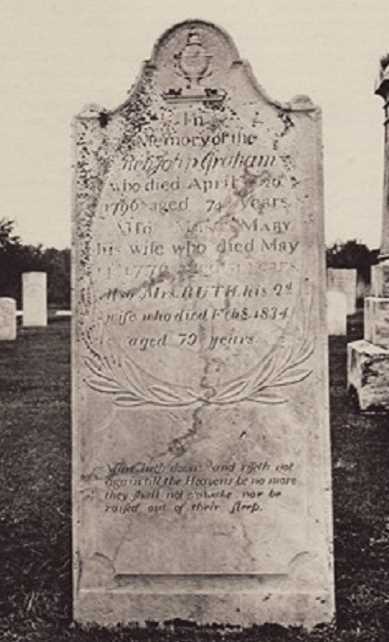 In
Memory of the
Rev John Graham
who died April
1796 aged 74 years
Also Mrs Mary
his wife who died May
1776 years
Also Mrs. RUTH his 2d
wife who died Feb 8. 1834
aged 79 years
down and riseth not
again till the Heavens be no more
they shall not awake nor be
raised out of their sleep.